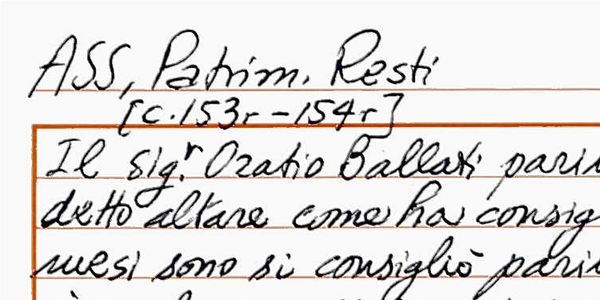 ASS, Patrim. Resti
[c.153r-154r]
Il sig.r Oratio Ballati parim
detto altare come ha consig
mesi sono si consigliò parim